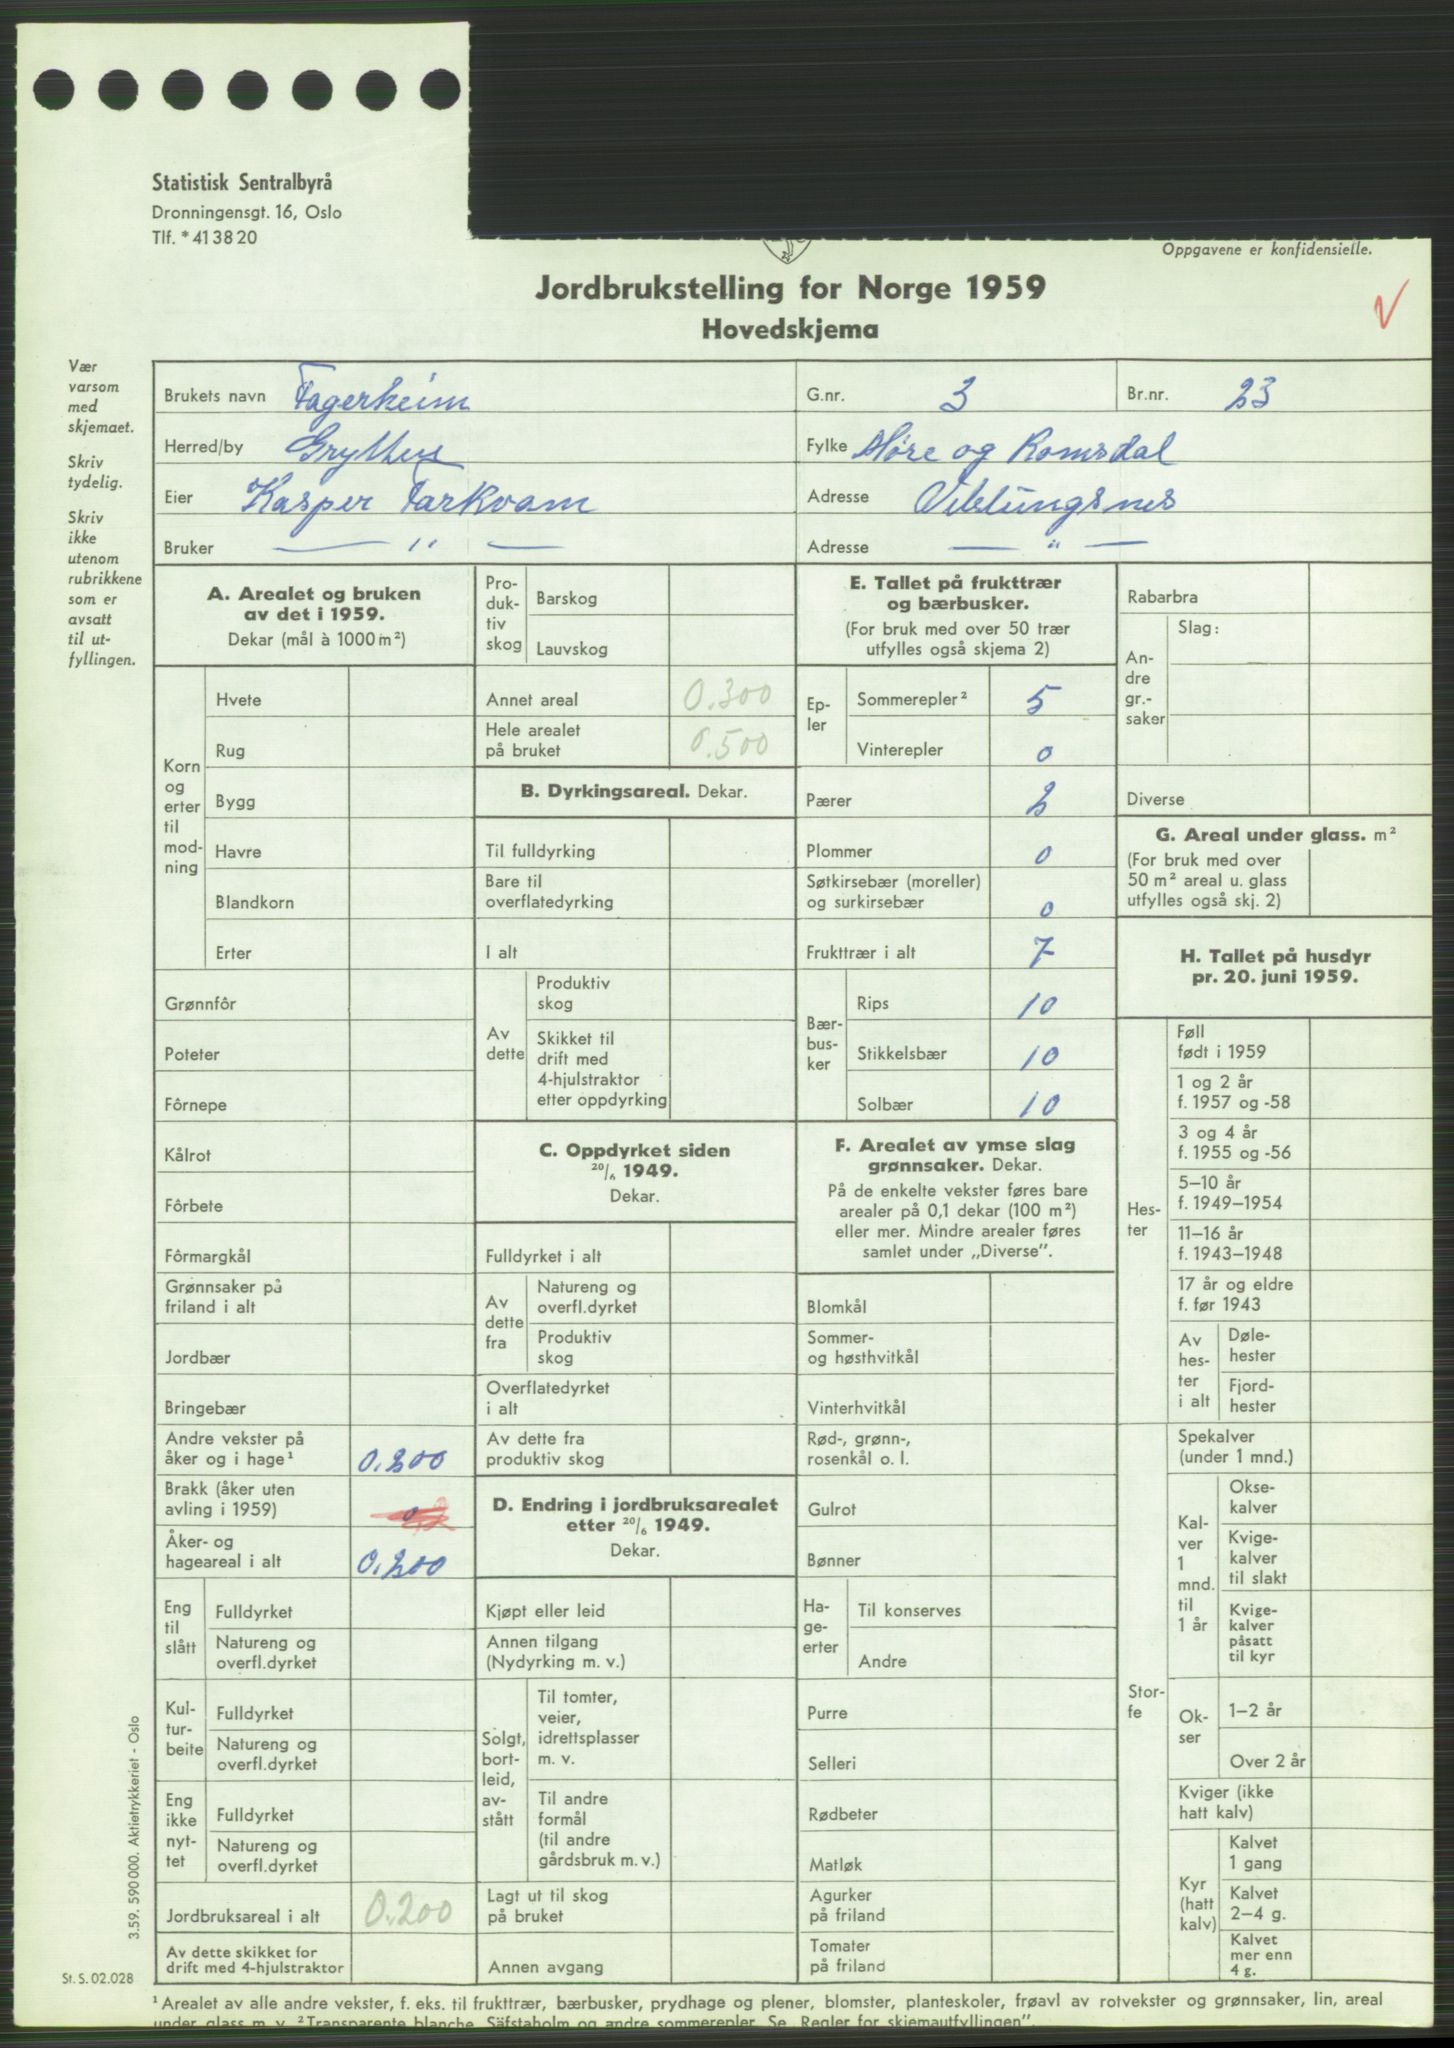 Statistisk Sentralbyrå
Dronningensgt. 16, Oslo
Tlf. * 41 38 20
Oppgavene er konfidensielle.
Jordbrukstelling for Norge 1959
Hovedskjema
V
Vær
varsom
med
skjemaet.
Skriv
tydelig.
Skriv
ikke
utenom
rubrikkene
som er
avsatt
til ut-
fyllingen.
Brukets navn Fagerheim G.nr. 3 Br.nr. 23
Herred/by Grytten Fylke Møre og Romsdal
Eier Kasper Tarkvam Adresse Veblungsnes
Bruker — " — Adresse — " —
A. Arealet og bruken
av det i 1959.
Dekar (mål à 1000 m²)
Korn
og
erter
til
mod-
ning
Hvete
Rug
Bygg
Havre
Blandkorn
Erter
Grønnfôr
Poteter
Fôrnepe
Kålrot
Fôrbete
Fôrmargkål
Grønnsaker på
friland i alt
Jordbær
Bringebær
Andre vekster på
åker og i hage¹ 0.200
Brakk (åker uten
avling i 1959) 0
Åker- og
hageareal i alt 0.200
Eng
til
slått
Fulldyrket
Natureng og
overfl.dyrket
Kul-
tur-
beite
Fulldyrket
Natureng og
overfl.dyrket
Eng
ikke
nyt-
tet
Fulldyrket
Natureng og
overfl.dyrket
Jordbruksareal i alt 0.200
Av dette skikket for
drift med 4-hjulstraktor
Pro-
duk-
tiv
skog
Barskog
Lauvskog
Annet areal 0.300
Hele arealet
på bruket 0.500
B. Dyrkingsareal. Dekar.
Til fulldyrking
Bare til
overflatedyrking
I alt
Av
dette
Produktiv
skog
Skikket til
drift med
4-hjulstraktor
etter oppdyrking
C. Oppdyrket siden
20/6 1949.
Dekar.
Fulldyrket i alt
Av
dette
fra
Natureng og
overfl.dyrket
Produktiv
skog
Overflatedyrket
i alt
Av dette fra
produktiv skog
D. Endring i jordbruksarealet
etter 20/6 1949.
Dekar.
Kjøpt eller leid
Annen tilgang
(Nydyrking m. v.)
Solgt,
bort-
leid,
av-
stått
Til tomter,
veier,
idrettsplasser
m. v.
Til andre
formål
(til andre
gårdsbruk m. v.)
Lagt ut til skog
på bruket
Annen avgang
E. Tallet på frukttrær
og bærbusker.
(For bruk med over 50 trær
utfylles også skjema 2)
Ep-
ler
Sommerepler² 5
Vinterepler 0
Pærer 2
Plommer 0
Søtkirsebær (moreller)
og surkirsebær 0
Frukttrær i alt 7
Bær-
bus-
ker
Rips 10
Stikkelsbær 10
Solbær 10
F. Arealet av ymse slag
grønnsaker. Dekar.
På de enkelte vekster føres bare
arealer på 0,1 dekar (100 m²)
eller mer. Mindre arealer føres
samlet under „Diverse”.
Blomkål
Sommer-
og høsthvitkål
Vinterhvitkål
Rød-, grønn-,
rosenkål o. l.
Gulrot
Bønner
Ha-
ge-
erter
Til konserves
Andre
Purre
Selleri
Rødbeter
Matløk
Agurker
på friland
Tomater
på friland
Rabarbra
An-
dre
gr.-
saker
Slag:
Diverse
G. Areal under glass. m²
(For bruk med over
50 m² areal u. glass
utfylles også skj. 2)
H. Tallet på husdyr
pr. 20. juni 1959.
Hes-
ter
Føll
født i 1959
1 og 2 år
f. 1957 og -58
3 og 4 år
f. 1955 og -56
5–10 år
f. 1949–1954
11–16 år
f. 1943–1948
17 år og eldre
f. før 1943
Av
hes-
ter
i alt
Døle-
hester
Fjord-
hester
Stor-
fe
Spekalver
(under 1 mnd.)
Kal-
ver
1
mnd.
til
1 år
Okse-
kalver
Kvige-
kalver
til slakt
Kvige-
kalver
påsatt
til kyr
Ok-
ser
1–2 år
Over 2 år
Kviger (ikke
hatt kalv)
Kyr
(hatt
kalv)
Kalvet
1 gang
Kalvet
2–4 g.
Kalvet
mer enn
4 g.
3.59. 590 000. Aktietrykkeriet - Oslo
St. S. 02.028
¹ Arealet av alle andre vekster, f. eks. til frukttrær, bærbusker, prydhage og plener, blomster, planteskoler, frøavl av rotvekster og grønnsaker, lin, areal
under glass m. v. ² Transparente blanche, Säfstaholm og andre sommerepler. Se „Regler for skjemautfyllingen”.